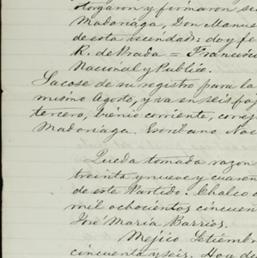 otorgaron y firmaron se
Madariaga, Don Manuel
de esta vecindad: doy fe
R. de Prada = Francisco
Nacional y Publico.
Sacose de su registro para la
mismo Agosto, y va en seis foj
tercero, bienio corriente, correj
Madariaga. Escribano Nac
Queda tomada razon
treinta y nueve y cuaren
de este Partido. Chalco
mil ochocientos cincuen
José María Barrios.
Mejico Setiembre
cincuenta y seis. Hoy de